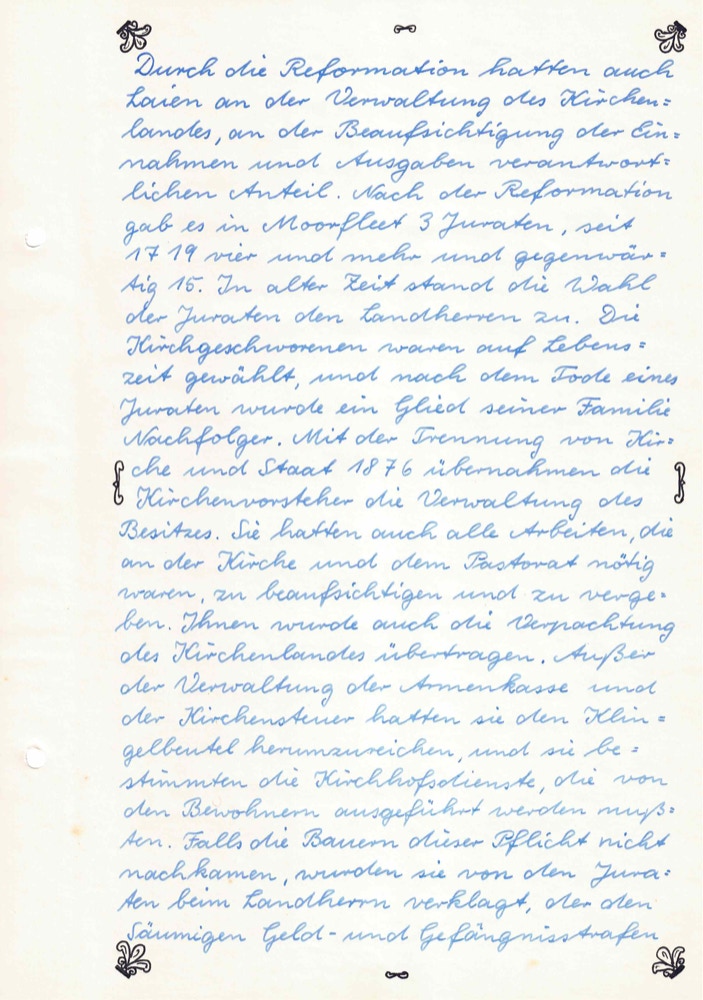 Durch die Reformation hatten auch
Laien an der Verwaltung des Kirchen=
landes, an der Beaufsichtigung der Ein=
nahmen und Ausgaben verantwort=
lichen Anteil. Nach der Reformation
gab es in Moorfleet 3 Juraten, seit
1719 vier und mehr und gegenwär=
tig 15. In alter Zeit stand die Wahl
der Juraten den Landherren zu. Die
Kirchgeschworenen waren auf Lebens=
zeit gewählt, und nach dem Tode eines
Juraten wurde ein Glied seiner Familie
Nachfolger. Mit der Trennung von Kir=
che und Staat 1876 übernahmen die
Kirchenvorsteher die Verwaltung des
Besitzes. Sie hatten auch alle Arbeiten, die
an der Kirche und dem Pastorat nötig
waren, zu beaufsichtigen und zu verge=
ben. Ihnen wurde auch die Verpachtung
des Kirchenlandes übertragen. Außer
der Verwaltung der Armenkasse und
der Kirchensteuer hatten sie den Klin=
gelbeutel herumzureichen, und sie be=
stimmten die Kirchhofsdienste, die von
den Bewohnern ausgeführt werden muß=
ten. Falls die Bauern dieser Pflicht nicht
nachkamen, wurden sie von den Jura=
ten beim Landherrn verklagt, der den
Säumigen Geld- und Gefängnisstrafen